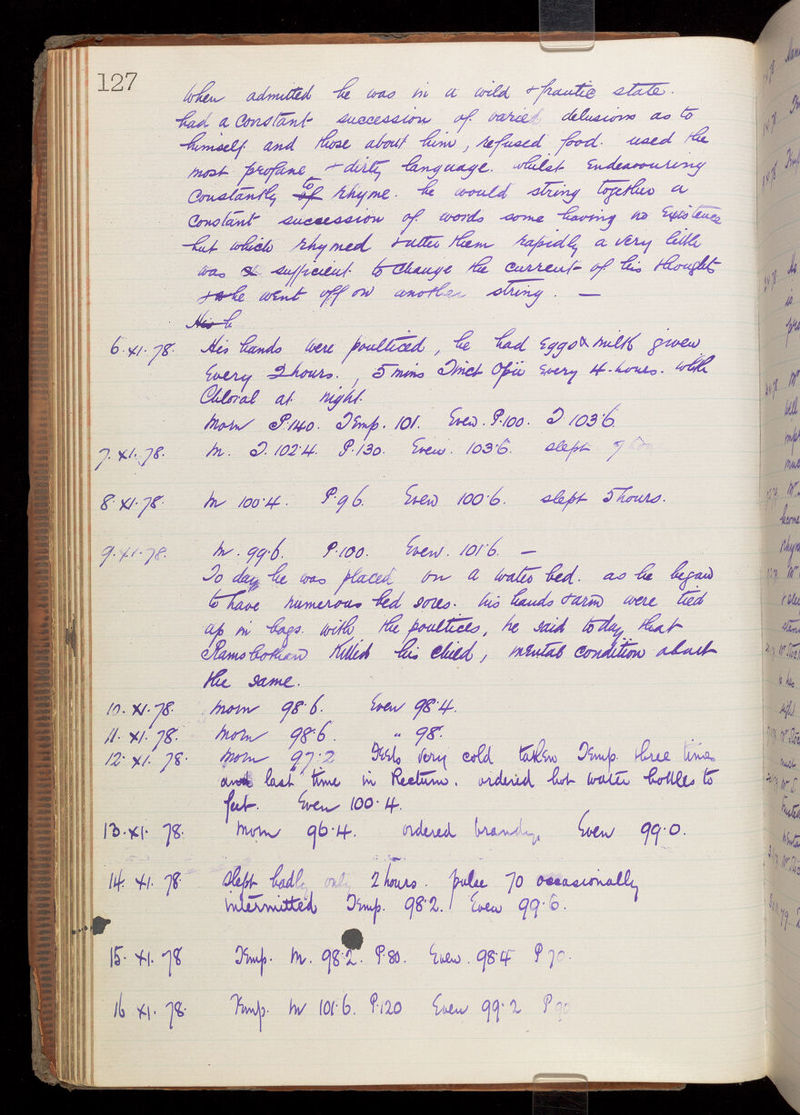 127
When admitted he was in a wild & frantic state.
had a constant succession of varied delusions as to
himself and those about him, refused food. used the
most profane & dirty language. whilst Endeavouring
Constantly to rhyme. he would string together a
constant succession of words some having no Existence
but which rhymed & utter them rapidly a very little
was sufficient to change the current of his thoughts
& he went off on another string. —
His h
6. XI. 78. His hands were poulticed, he had Eggs & milk given
Every 2 hours., 5 mins Tinct Opii Every 4. hours. with
Chloral at night.
Morn P. 140. Temp. 101. Even. P. 100. T 103.6
7. XI. 78. M. T. 102.4. P. 130. Even. 103.6. slept
8. XI. 78. M 100.4. P. 96. Even 100.6. slept 5 hours.
9. XI. 78. M. 99.6. P. 100. Even. 101.6. —
To day he was placed on a water bed. as he began
to have numerous bed sores. his hands & arm were tied
up in bags. with the poultices, he said today that
Ramsbotham Killed his child, mental condition about
the same.
10. XI. 78. Morn 98.6. Even 98.4.
11. XI. 78. Morn 98.6. " 98.
12. XI. 78. Morn 97.2 Feels very cold taken Temp. three times
and last time in Rectum. ordered hot water bottles to
feet. Even 100.4.
13. XI. 78. Morn 96.4. ordered brandy, Even 99.0.
14. XI. 78 Slept badly only 2 hours. pulse 70 occasionally
intermitted Temp. 98.2. Even 99.6.
15. XI. 78 Temp. M. 98.2. P. 80. Even. 98.4 P 70.
16 XI. 78. Temp. M 101.6. P. 120 Even 99.2 P 90